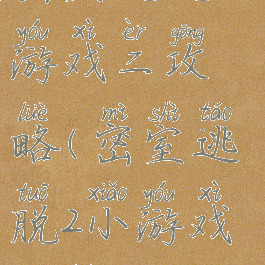 yóu xì èr gōng
游戏二攻
lüè mì shì táo
略(密室逃
tuō xiǎo yóu xì
脱2小游戏